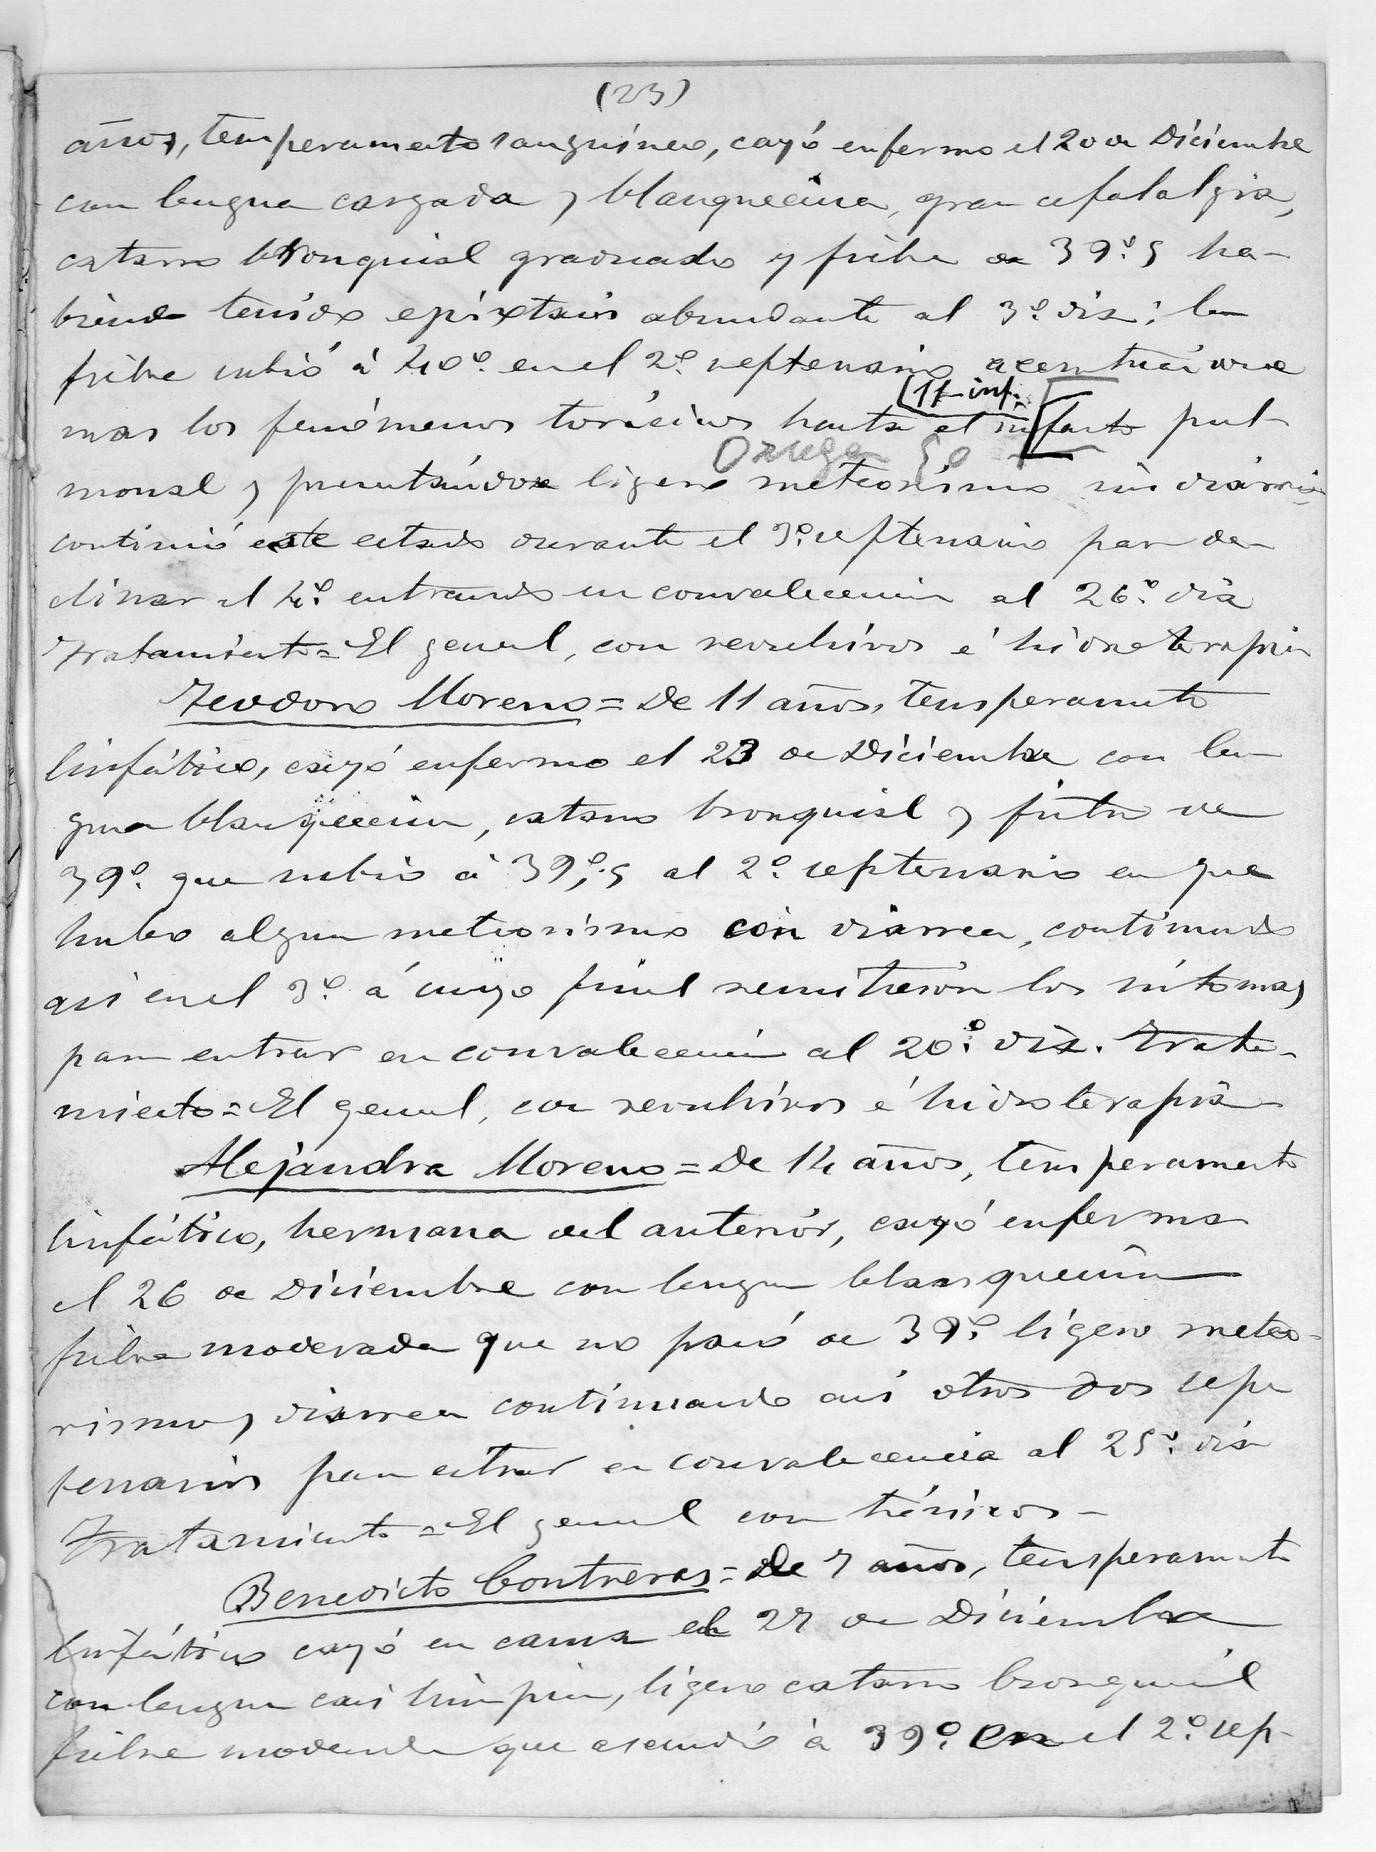 (23)
años, temperamento sanguineo, cayó enfermo el 20 de Diciembre
con lengua cargada y blanquecina, gran cefalalgia,
catarro bronquial graduado y fiebre de 39º.5 ha-
biendo tenido epixtasis abundante al 3º. dia; la
fiebre subió á 40º. en el 2º. septenario acentuandose
mas los fenómenos torácicos hasta el infarto pul-
monal y presentándose ligero meteorismo sin diarrea
continuó este estado durante el 3º. septenario para de-
clinar el 4º. entrando en convalecencia al 26º. dia
Tratamiento = El general, con revulsivos é hidroterapia
Teodoro Moreno = De 11 años, temperamento
linfático, cayó enfermo el 23 de Diciembre con len
gua blanquecina, catarro bronquial y fiebre de
39º. que subió á 39º,5 al 2º. septenario en que
hubo algun meteorismo con diarrea, continuando
asi en el 3º. á cuyo final remitierón los síntomas
para entrar en convalecencia al 20º. dia. Trata-
miento = El general, con revulsivos é hidroterapia
Alejandra Moreno = De 14 años, temperamento
linfático, hermana del anteriór, cayó enferma
el 26 de Diciembre con lengua blanquecina
fiebre moderada que no pasó de 39º. ligero meteo-
rismo y diarrea continuando asi otros dos sep
tenarios para entrar en convalecencia al 25º. dia
Tratamiento = El general con tónicos -
Benedicto Contreras = De 7 años, temperamento
linfático cayó en cama el 27 de Diciembre
con lengua casi limpia, ligero catarro bronquial
fiebre moderada que ascendió á 39º. en el 2º. sep-